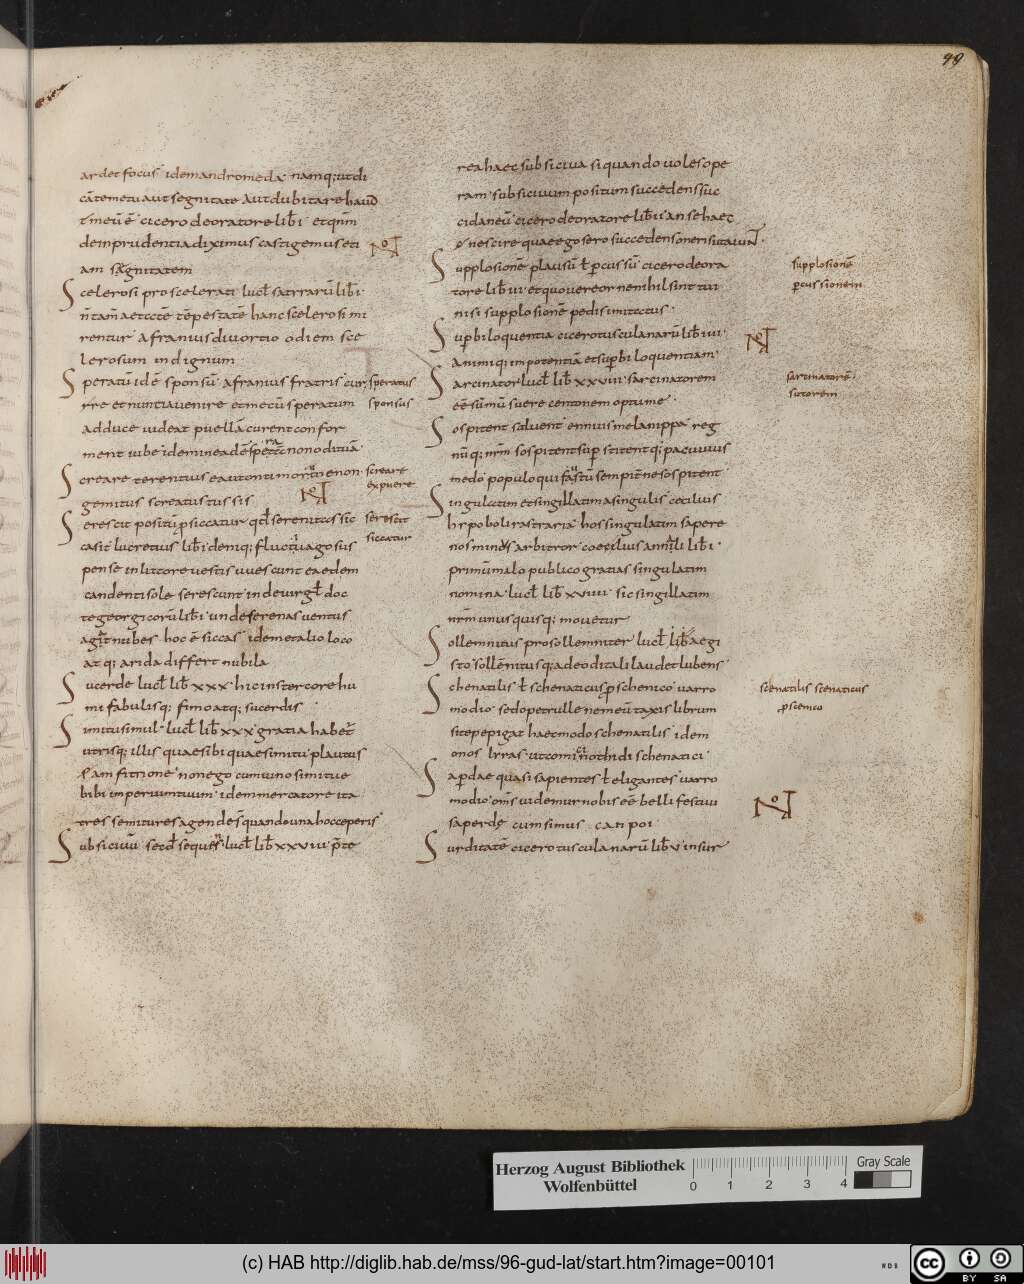 99
ardet focus idem andromeda namq; ut di
cā temetu aut segnitate Aut dubitare haud
ē cicero de oratore lib i et qnm
de inprudentia diximus castigemus eti
am segnitatem
Scelerosi pro scelerati lucł satirarū lib i
tēpestatē hanc scelerosi mi
rentur afranius divortio o diem sce
lerosum indignum
Speratū idē sponsū afranius fratris cur
rre et nuntia venire et mecū speratum
adduce videat puellā curent confor
ment iube idem in eadē non oditiā
Screare terentius eautontimor enon
gemitus screatus tussis
Serescit positū p siccatur qđ serenitas sic
casit lucretius lib i deniq; fluctivago sus
pense in litore vestis uvescunt eaedem
candenti sole serescunt inde virgł doc
te georgicorū lib i unde serenas ventus
agit nubes hoc ē siccas idem et alio loco
atq; arida differt nubila
Sucerde lucł lib xxx hic in stercore hu
mi fabulisq; fimo atq; sucerdis
Simitu simul lucł lib xxx gratia habet
utrisq; illis quae sibi quae simitu plautus
in amfitrione non ego cum vino simitu e
bibi imperium tuum idem mercatore ita
tres semitu res agendes quando una hoc ceperis
Subsicivū secđ seques lucł lib xxviii pte
rea haec subsiciva si quando voles ope
ram subsicivum positum succedens suc
cidaneū cicero de oratore lib ii an se haec
nescire quae ego sero succedens
Supplosionē plausū ł pcussū cicero de ora
tore lib vi et quo vereor ne nihil sint tui
nisi supplosionē pedis imitatus
Supbiloquentia cicero tusculanarū lib iiii
animiq; inpotentiā et supbiloquentiam
Sarcinator lucł lib xxviii sarcinatorem
eē sūmū suere centonem optume
Sospitent salvent ennius melanippa reg
nūq; nrm sospitent sup stitentq; pacuvius
medo populoqui faustū sempitne sospitent
Singulatim et singillatim a singulis cecilius
hos singulatim sapere
nos minus arbitror coecilius lib i
primū malo publico gratias singulatim
nomina lucł lib xxviiii sic singillatim
nrm unusquisq; movetur
Sollemnitus pro sollemniter lucł lib aegi
sto sollēnitusq; adeo ditali laudet lubens
Schenatilis ł schenaticus p schenico varro
modio sed o petrulle ne meū taxis librum
si te pepigat haec modo schenatilis idem
onos lyras ut comici schenatici
Sapdae quasi sapientes ł eligantes varro
modio omīs videmur nobis eē belli festivi
saperde cum simus capi poi
Surditatē cicero tusculanarū lib v in sur
speratus
sponsus
screare
expuere
serescit
siccatur
supplosionē
pcussionem
sarcinatorē
sutorem
scenatilis scenaticus
p scenico
Herzog August Bibliothek
Wolfenbüttel
0 1 2 3 4
Gray Scale
(c) HAB http://diglib.hab.de/mss/96-gud-lat/start.htm?image=00101
WDB
cc BY SA